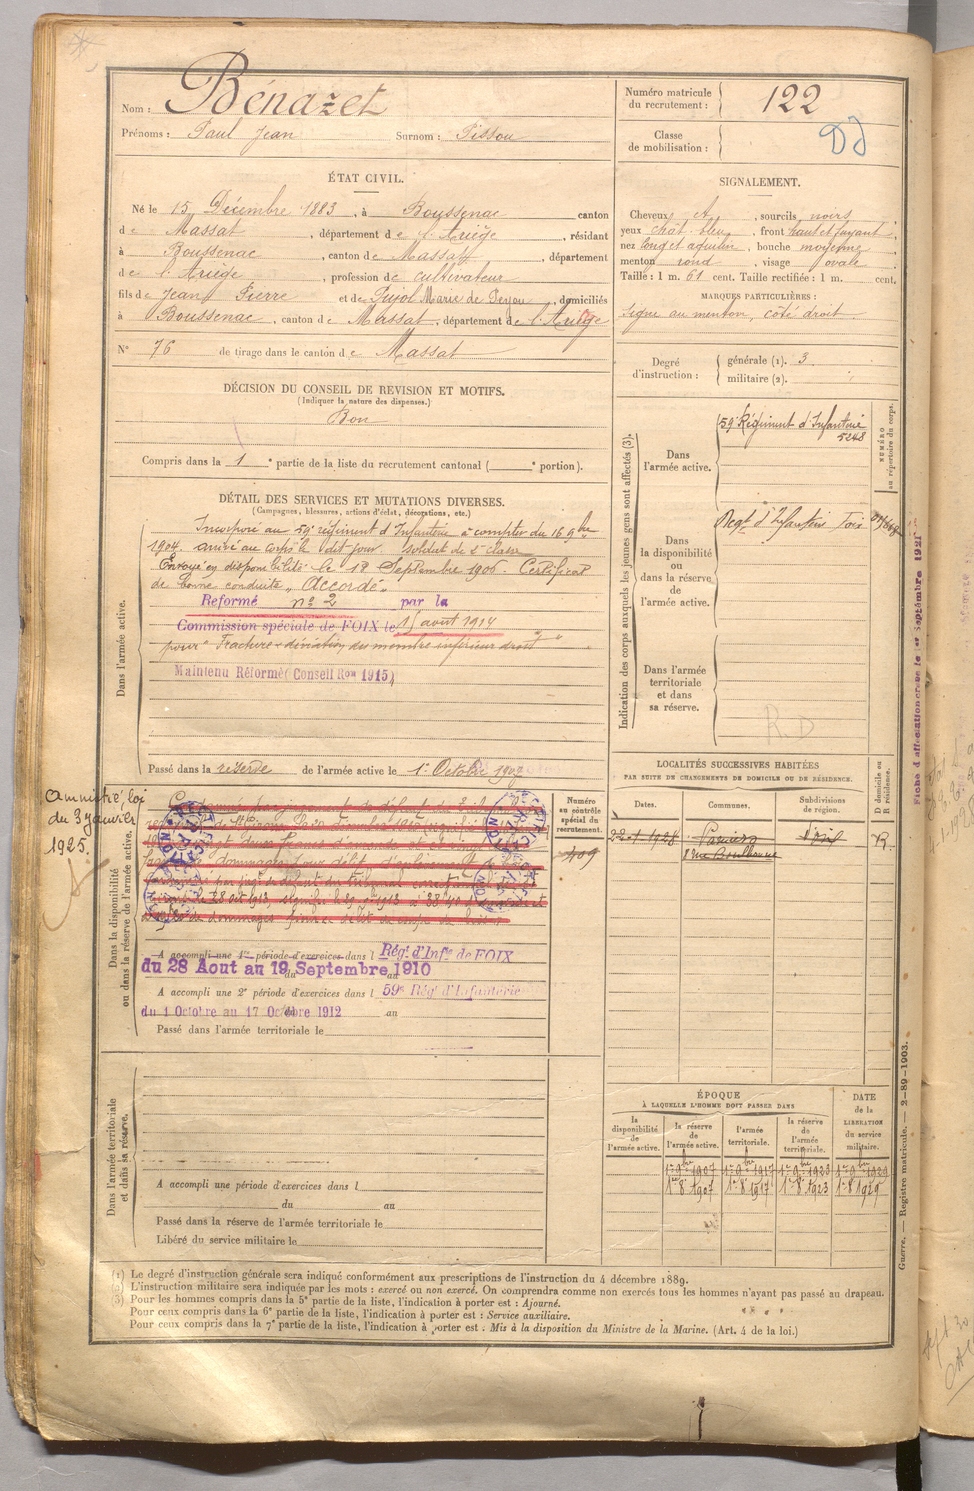 Nom : Bénazet
Prénoms : Paul Jean Surnom : Pissou
Numéro matricule du recrutement : 122
Classe de mobilisation :
ÉTAT CIVIL.
Né le 15 Décembre 1883, à Boussenac canton
de Massat, département de l'Ariège, résidant
à Boussenac, canton de Massat, département
de l'Ariège, profession de cultivateur
fils de Jean Pierre et de Pujol Marie de domiciliés
à Boussenac, canton de Massat, département de l'Ariège
N° 76 de tirage dans le canton de Massat
SIGNALEMENT.
Cheveux, sourcils noirs
yeux chat. bleu, front haut et fuyant,
nez long et aquilin, bouche moyenne
menton rond, visage ovale
Taille : 1 m. 61 cent. Taille rectifiée : 1 m. cent.
MARQUES PARTICULIÈRES :
signe au menton, côté droit
Degré d'instruction : générale (1). 3
militaire (2).
DÉCISION DU CONSEIL DE REVISION ET MOTIFS.
(Indiquer la nature des dispenses.)
Bon
Compris dans la 1e partie de la liste du recrutement cantonal (e portion).
DÉTAIL DES SERVICES ET MUTATIONS DIVERSES.
(Campagnes, blessures, actions d'éclat, décorations, etc.)
Dans l'armée active.
Incorporé au 59e régiment d'Infanterie à compter du 16 9bre
1904. arrivé au corps le dit jour. Soldat de 2e classe
Envoyé en disponibilité le 18 Septembre 1906. Certificat
de bonne conduite "Accordé"
Reformé n° 2 par la
Commission spéciale de FOIX le 15 août 1914
pour "Fracture déviation du membre inférieur droit"
Maintenu Réformé (Conseil Ron 1915)
Passé dans la réserve de l'armée active le 1er Octobre 1907
Indication des corps auxquels les jeunes gens sont affectés (3).
Dans l'armée active.
59e Régiment d'Infanterie
5248
NUMÉRO au répertoire du corps.
Dans la disponibilité ou dans la réserve de l'armée active.
Regt d'Infanterie Foix
Dans l'armée territoriale et dans sa réserve.
R.D
Fiche d'affectation créée le 1er Septembre 1921
Amnistié, loi
du 3 Janvier
1925.
Dans la disponibilité ou dans la réserve de l'armée active.
Numéro au contrôle spécial du recrutement.
409
A accompli une 1re période d'exercices dans l Régt d'Infie de FOIX
du 28 Aout au 19 Septembre 1910
A accompli une 2e période d'exercices dans l 59e Régt d'Infanterie
du 1 Octobre au 17 Octobre 1912 au
Passé dans l'armée territoriale le
LOCALITÉS SUCCESSIVES HABITÉES
PAR SUITE DE CHANGEMENTS DE DOMICILE OU DE RÉSIDENCE.
Dates. Communes. Subdivisions de région. D domicile ou R résidence.
22-1-1928 Pamiers R.
Dans l'armée territoriale et dans sa réserve.
A accompli une période d'exercices dans l
du au
Passé dans la réserve de l'armée territoriale le
Libéré du service militaire le
ÉPOQUE
À LAQUELLE L'HOMME DOIT PASSER DANS
la disponibilité de l'armée active.
la réserve de l'armée active.
l'armée territoriale.
la réserve de l'armée territoriale.
DATE de la LIBÉRATION du service militaire.
1er 9bre 1907 1er 9bre 1917 1er 9bre 1923 1er 9bre 1929
1er 8 1907 1er 8 1917 1er 8 1923 1er 8 1929
Guerre. — Registre matricule. — 2-89-1903.
(1) Le degré d'instruction générale sera indiqué conformément aux prescriptions de l'instruction du 4 décembre 1889.
(2) L'instruction militaire sera indiquée par les mots : exercé ou non exercé. On comprendra comme non exercés tous les hommes n'ayant pas passé au drapeau.
(3) Pour les hommes compris dans la 5e partie de la liste, l'indication à porter est : Ajourné.
Pour ceux compris dans la 6e partie de la liste, l'indication à porter est : Service auxiliaire.
Pour ceux compris dans la 7e partie de la liste, l'indication à porter est : Mis à la disposition du Ministre de la Marine. (Art. 4 de la loi.)